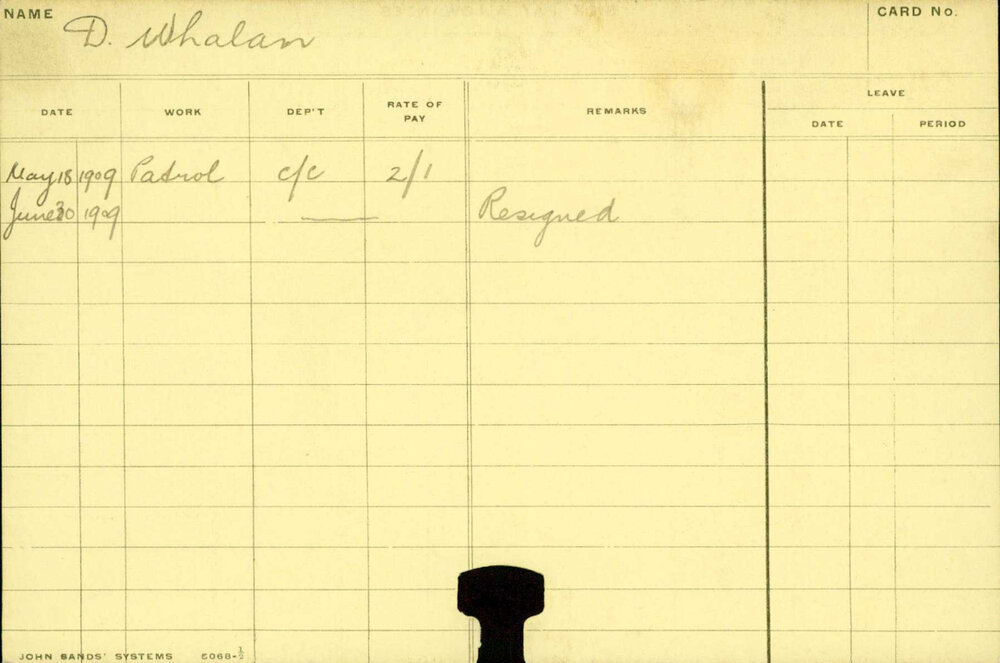 NAME D. Whalan CARD No.
DATE WORK DEP'T RATE OF PAY REMARKS LEAVE
DATE PERIOD
May 18 1909 Patrol c/c 2/1
June 1909 Resigned
JOHN SANDS' SYSTEMS 5068-½